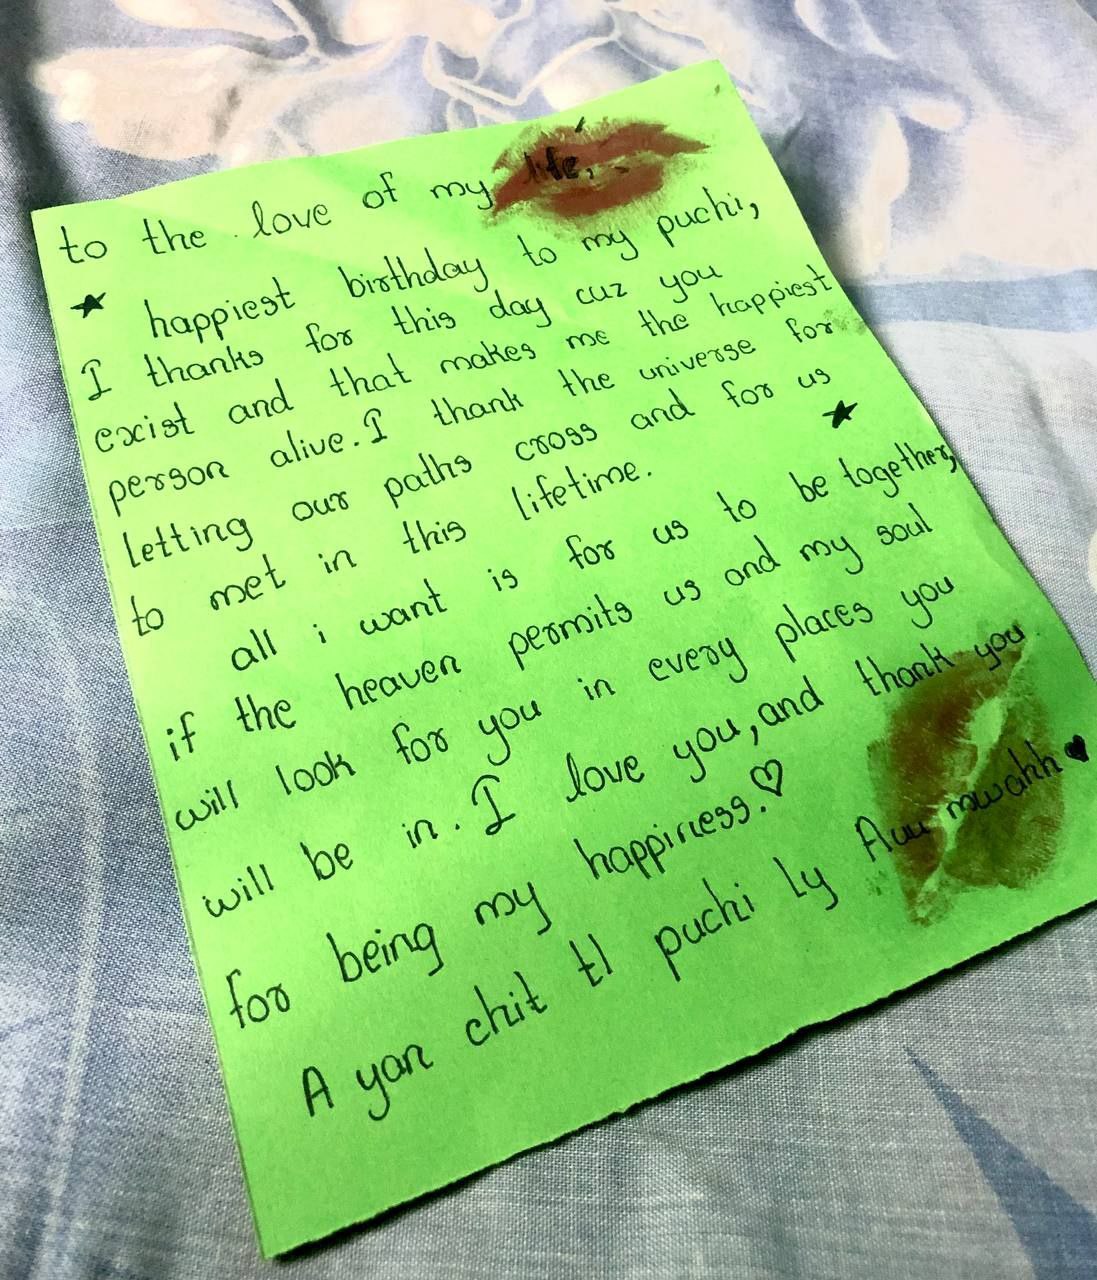 to the love of my life,
happiest birthday to my puchi,
I thanks for this day cuz you
exist and that makes me the happiest
person alive. I thank the universe for
letting our paths cross and for us
to met in this lifetime.
all i want is for us to be together,
if the heaven permits us and my soul
will look for you in every places you
will be in. I love you, and thank you
for being my happiness. ♡
A yan chit tl puchi ly Auu mwahh ♥